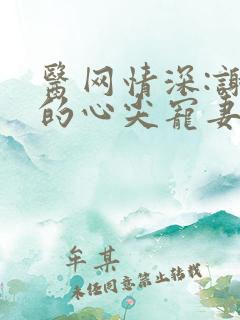 医网情深:謝
的心尖宠妻
牟某
未经同意禁止转载